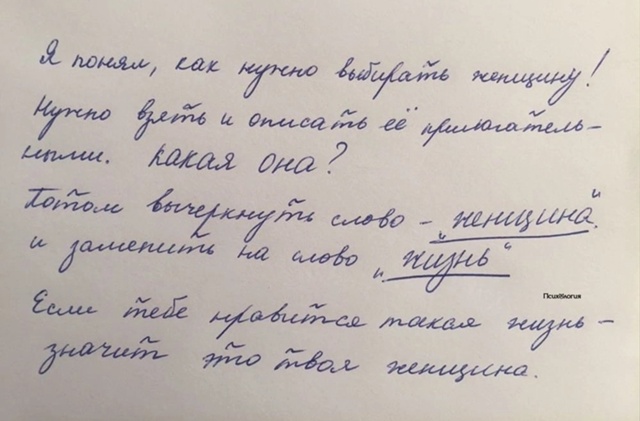 Я понял, как нужно выбирать женщину!
Нужно взять и описать её прилагатель-
ными. Какая она?
Потом вычеркнуть слово - "женщина".
и заменить на слово "жизнь"
Психология
Если тебе нравится такая жизнь -
значит это твоя женщина.